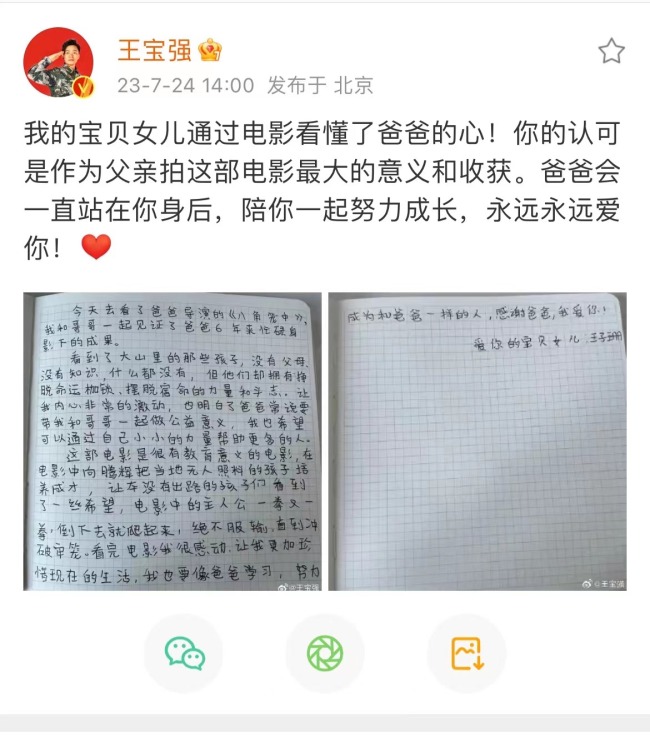 王宝强
23-7-24 14:00 发布于 北京
我的宝贝女儿通过电影看懂了爸爸的心！你的认可
是作为父亲拍这部电影最大的意义和收获。爸爸会
一直站在你身后，陪你一起努力成长，永远永远爱
你！
今天去看了爸爸导演的《八角笼中》，
我和哥哥一起见证了爸爸6年来伏硬身
影下的成果。
看到了大山里的那些孩子，没有父母、
没有知识、什么都没有，但他们却拥有挣
脱命运枷锁、摆脱宿命的力量和斗志。让
我内心非常的激动，也明白了爸爸常说要
带我和哥哥一起做公益意义，我也希望
可以通过自己小小的力量帮助更多的人。
这部电影是很有教育意义的电影，在
电影中向腾辉把当地无人照料的孩子培
养成才，让本没有出路的孩子们看到
了一丝希望，电影中的主人公一拳又一
拳，倒下去就爬起来，绝不服输，直到冲
破牢笼。看完电影我很感动，让我更加珍
惜现在的生活，我也要像爸爸学习，努力
@王宝强
成为和爸爸一样的人，感谢爸爸，我爱你！
爱你的宝贝女儿：王子珊
@王宝强